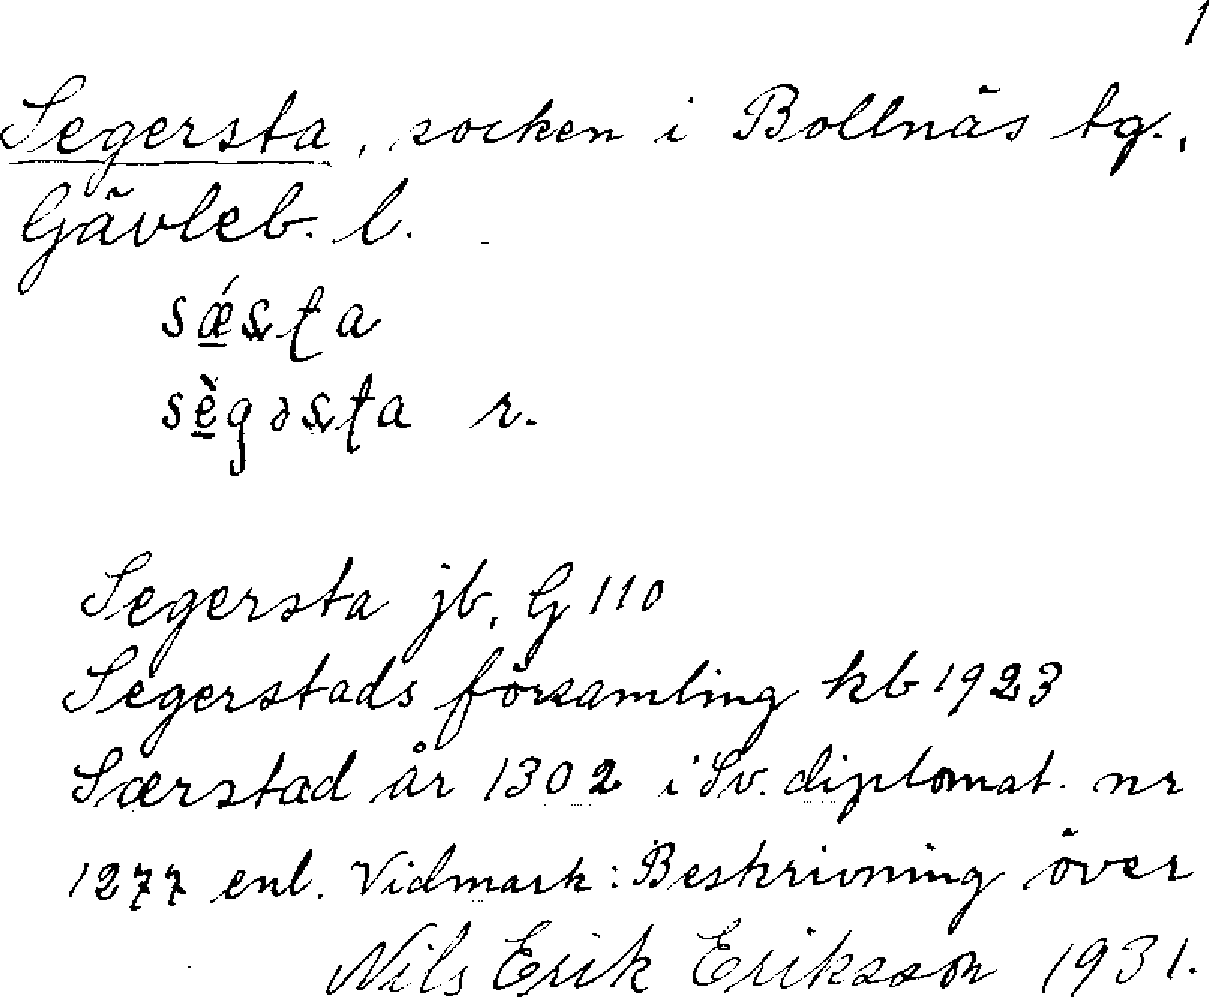 1
Segersta, socken i Bollnäs tg.,
Gävleb. l.
sǽ̲s̨ta
sè̲gəs̨ta r.
Segersta jb. G 110
Segerstads församling kb 1923
Særstad år 1302 i Sv. diplomat. nr
1277 enl. Vidmark: Beskrivning över
Nils Erik Eriksson 1931.